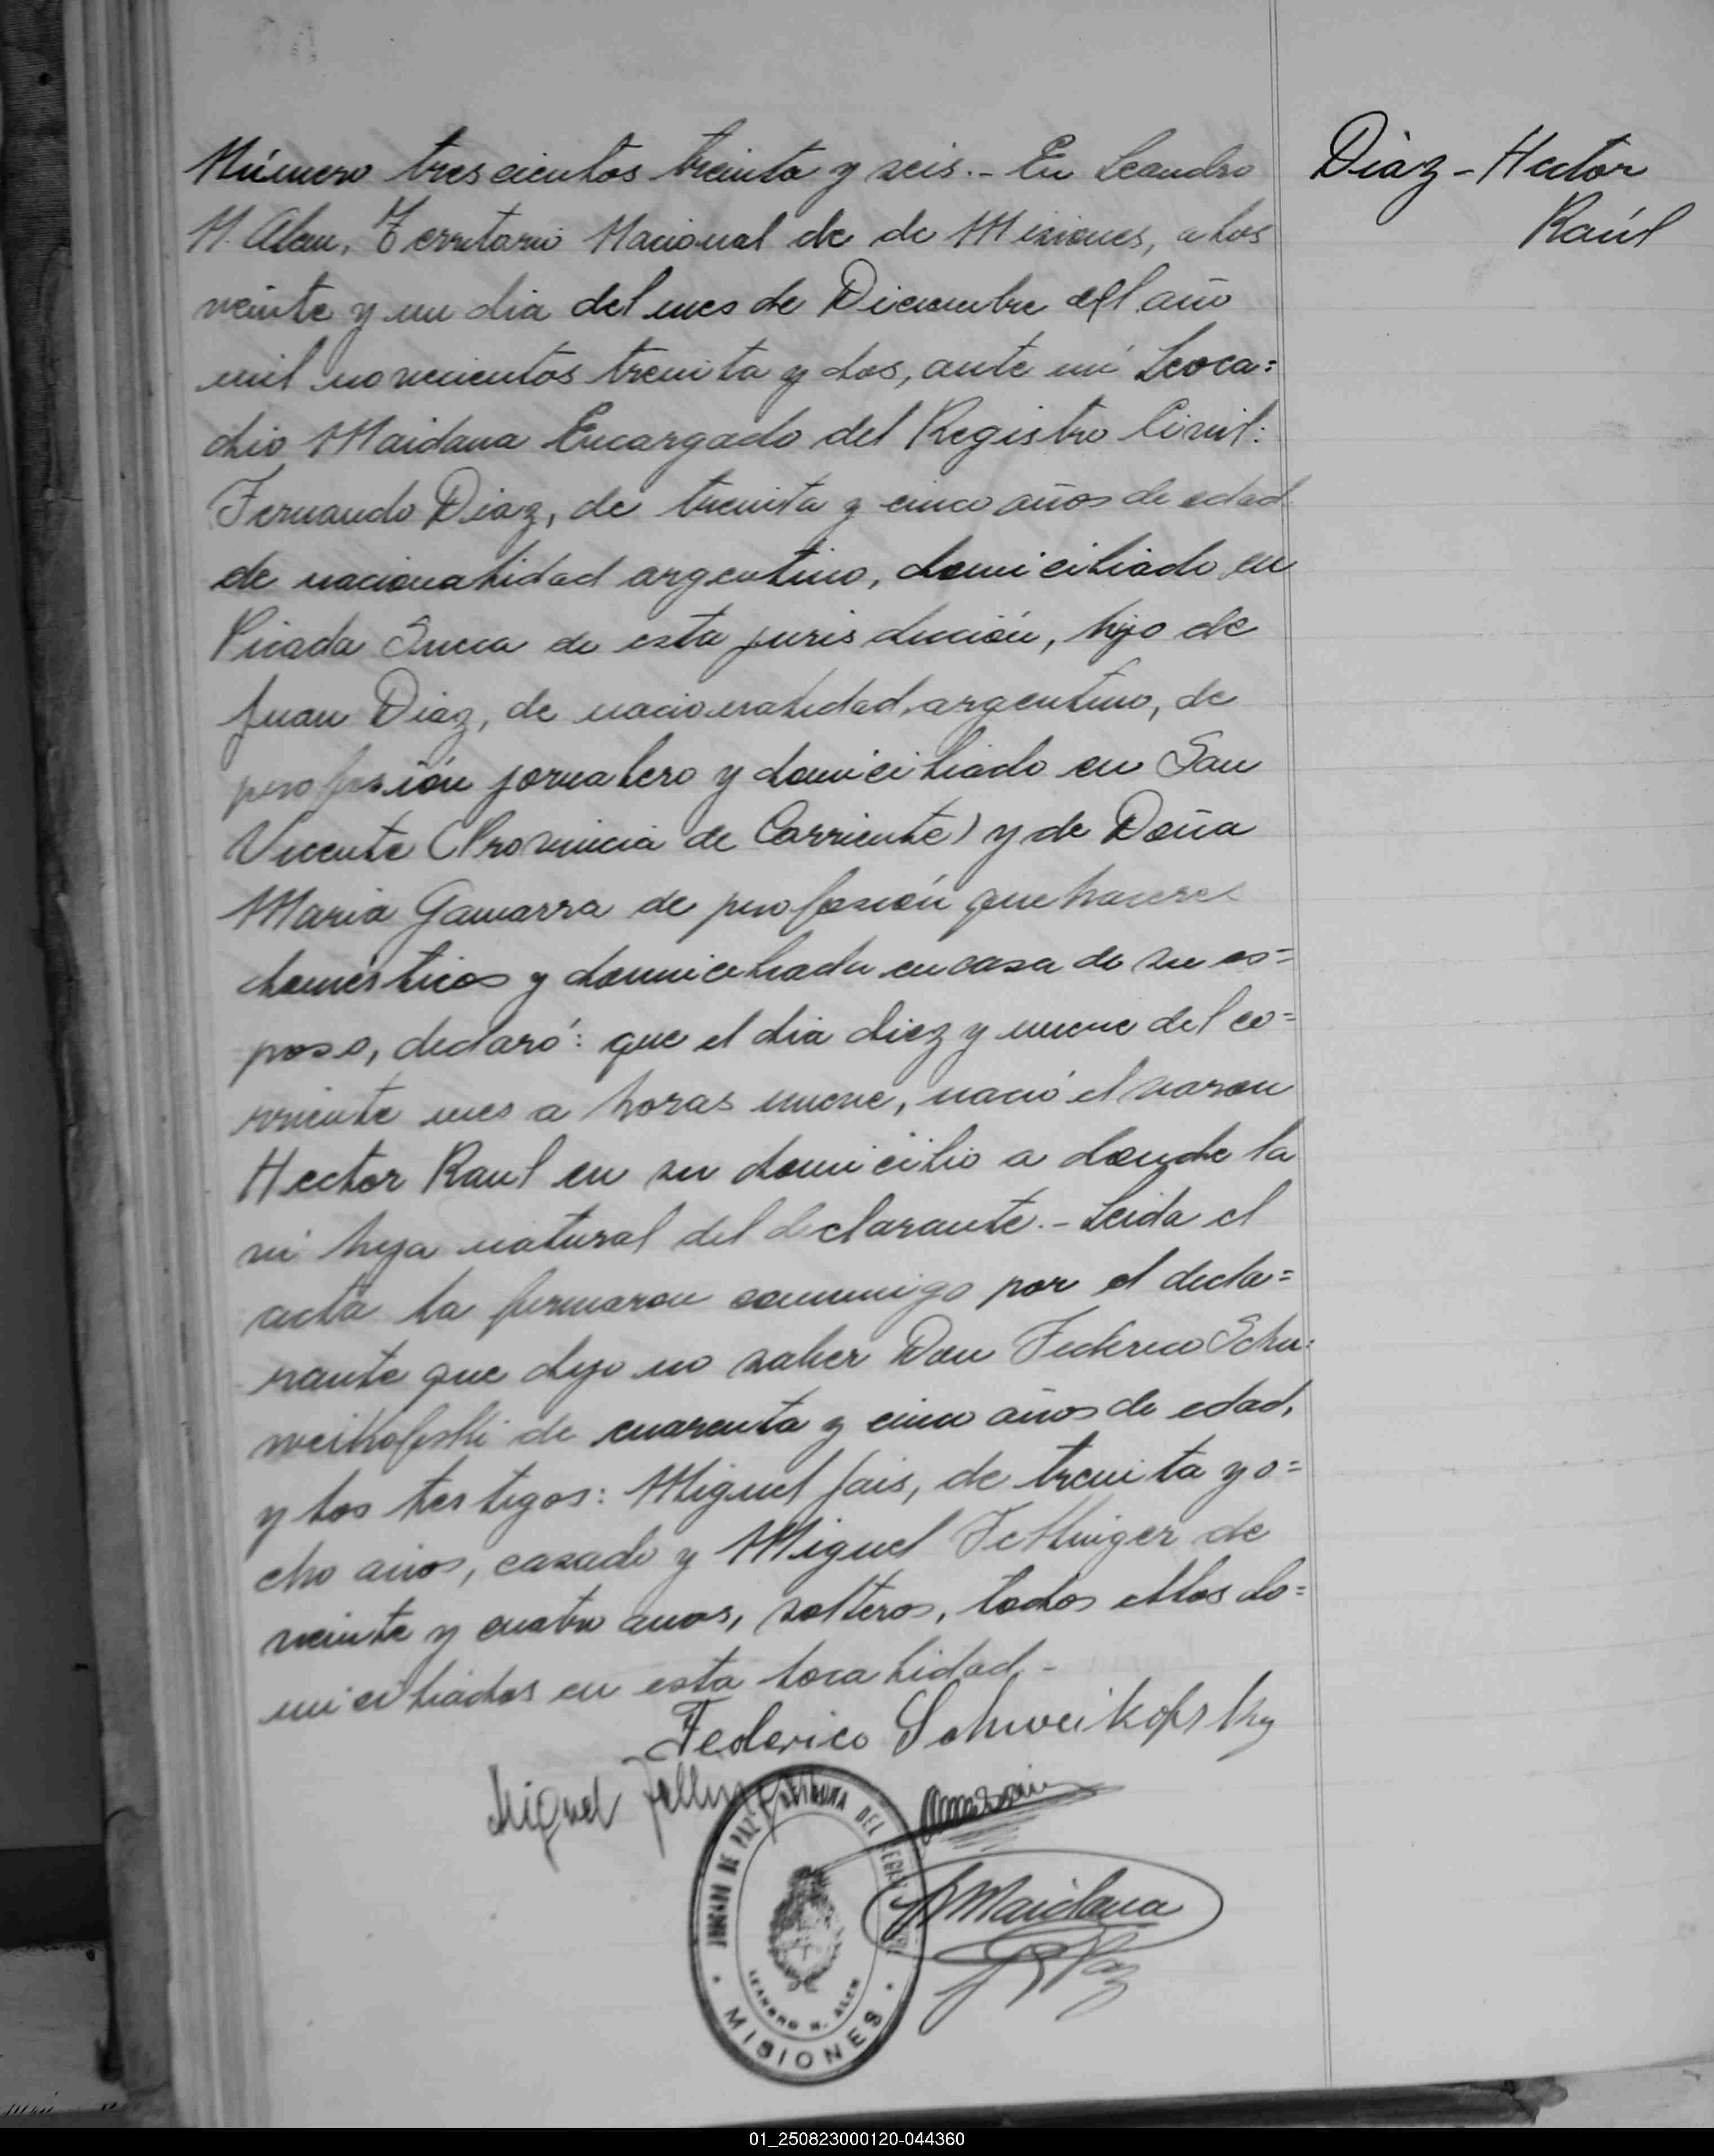 Número trescientos treinta y seis.- En Leandro
N. Alem, Territorio Nacional de de Misiones, a los
veinte y un dia del mes de Diciembre del año
mil novecientos treinta y dos, ante mi Leoca=
dio Maidana Encargado del Registro Civil:
Fernando Diaz, de treinta y cinco años de edad
de nacionalidad argentino, domiciliado en
Picada Sueca de esta jurisdición, hijo de
Juan Diaz, de nacionalidad argentino, de
profesión jornalero y domiciliado en San
Vicente (Provincia de Corriente) y de Doña
Maria Gamarra de profesión quehaceres
domésticos y domiciliada en casa de su es=
poso, declaró: que el dia diez y nueve del co=
rriente mes a horas nueve, nació el varon
Hector Raul en su domicilio a donde la
vi hija natural del declarante.- Leida el
acta la firmaron conmigo por el decla=
rante que dijo no saber Don Federico Schu=
weikofski de cuarenta y cinco años de edad,
y los testigos: Miguel Jais, de treinta y o=
cho años, casado y Miguel Fellinger de
veinte y cuatro anos, solteros, todos ellos do=
miciliados en esta localidad.-
Diaz - Hector
Raúl
Federico Schweikofsky
Miguel Fellinger
Maidana
JUZGADO DE PAZ DEL
LEANDRO N. ALEM
MISIONES
01_250823000120-044360